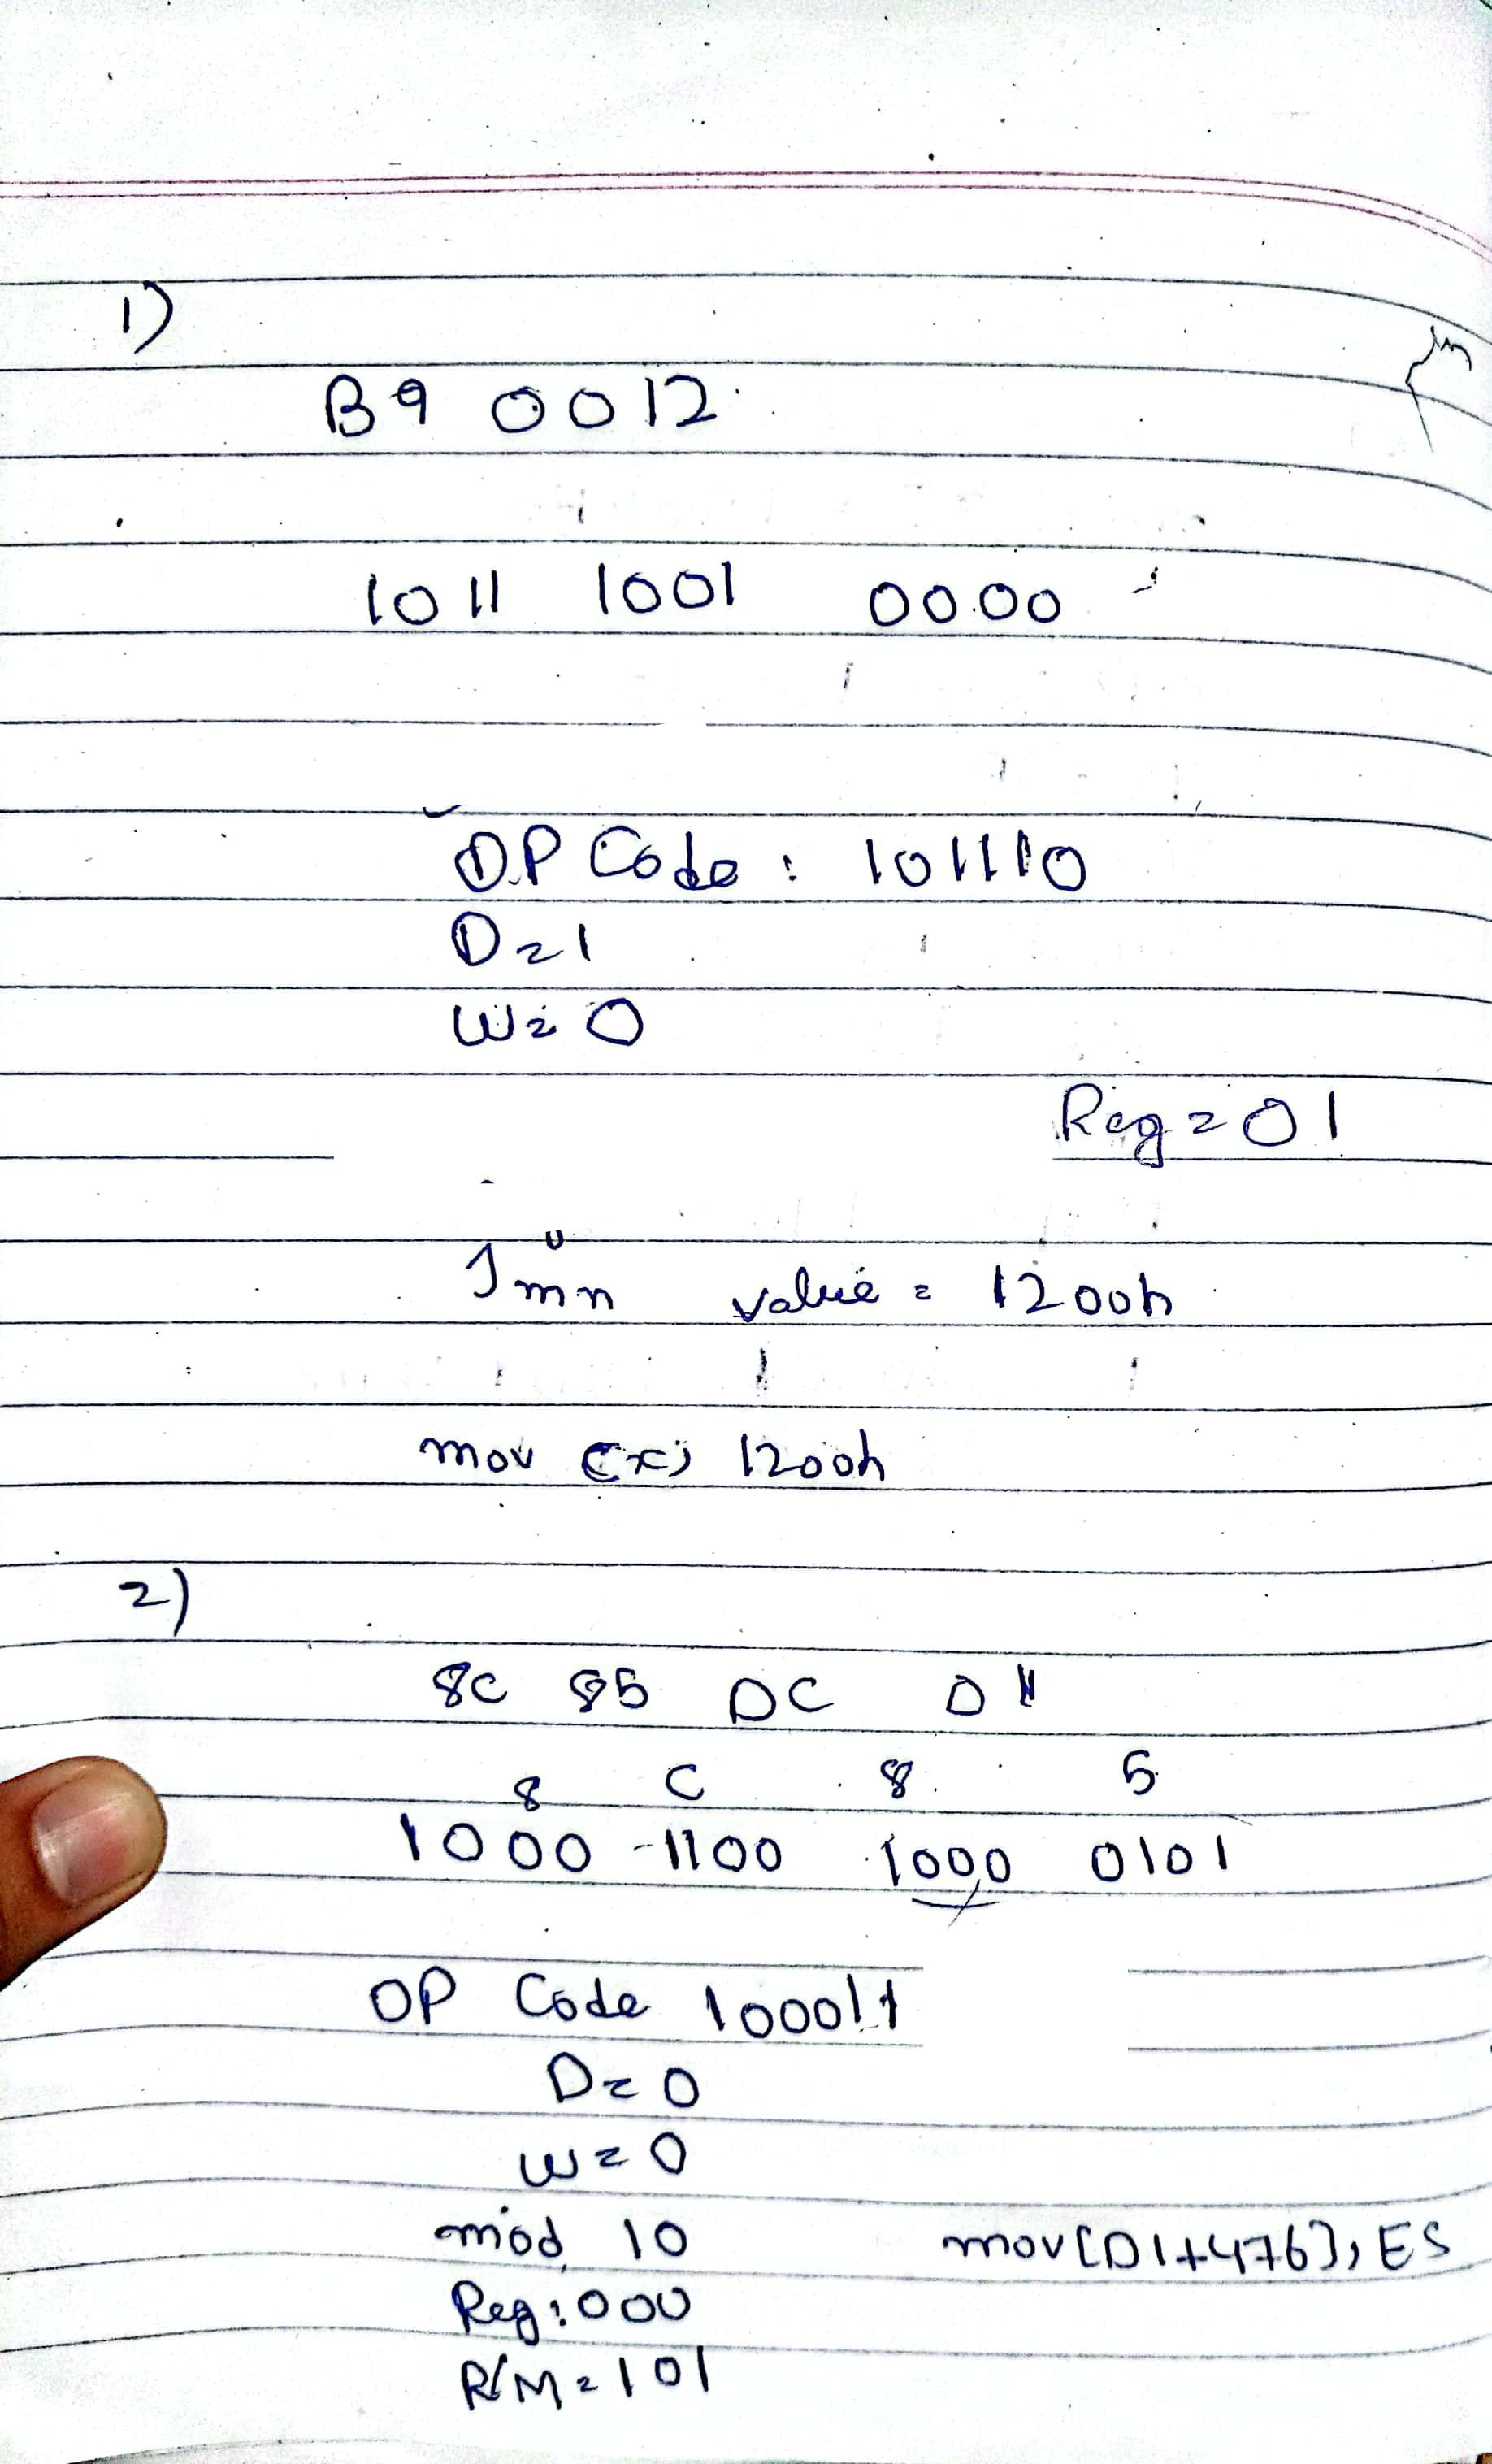 1)
B9 0012
1011 1001 0000
OP Code : 101110
D=1
W=0
Reg=01
Imn value = 1200h
mov cx, 1200h
2)
8C 85 DC 01
8 C 8 5
1000 1100 1000 0101
OP Code 100011
D=0
W=0
mod 10 mov[DI+476], ES
Reg:000
R/M=101